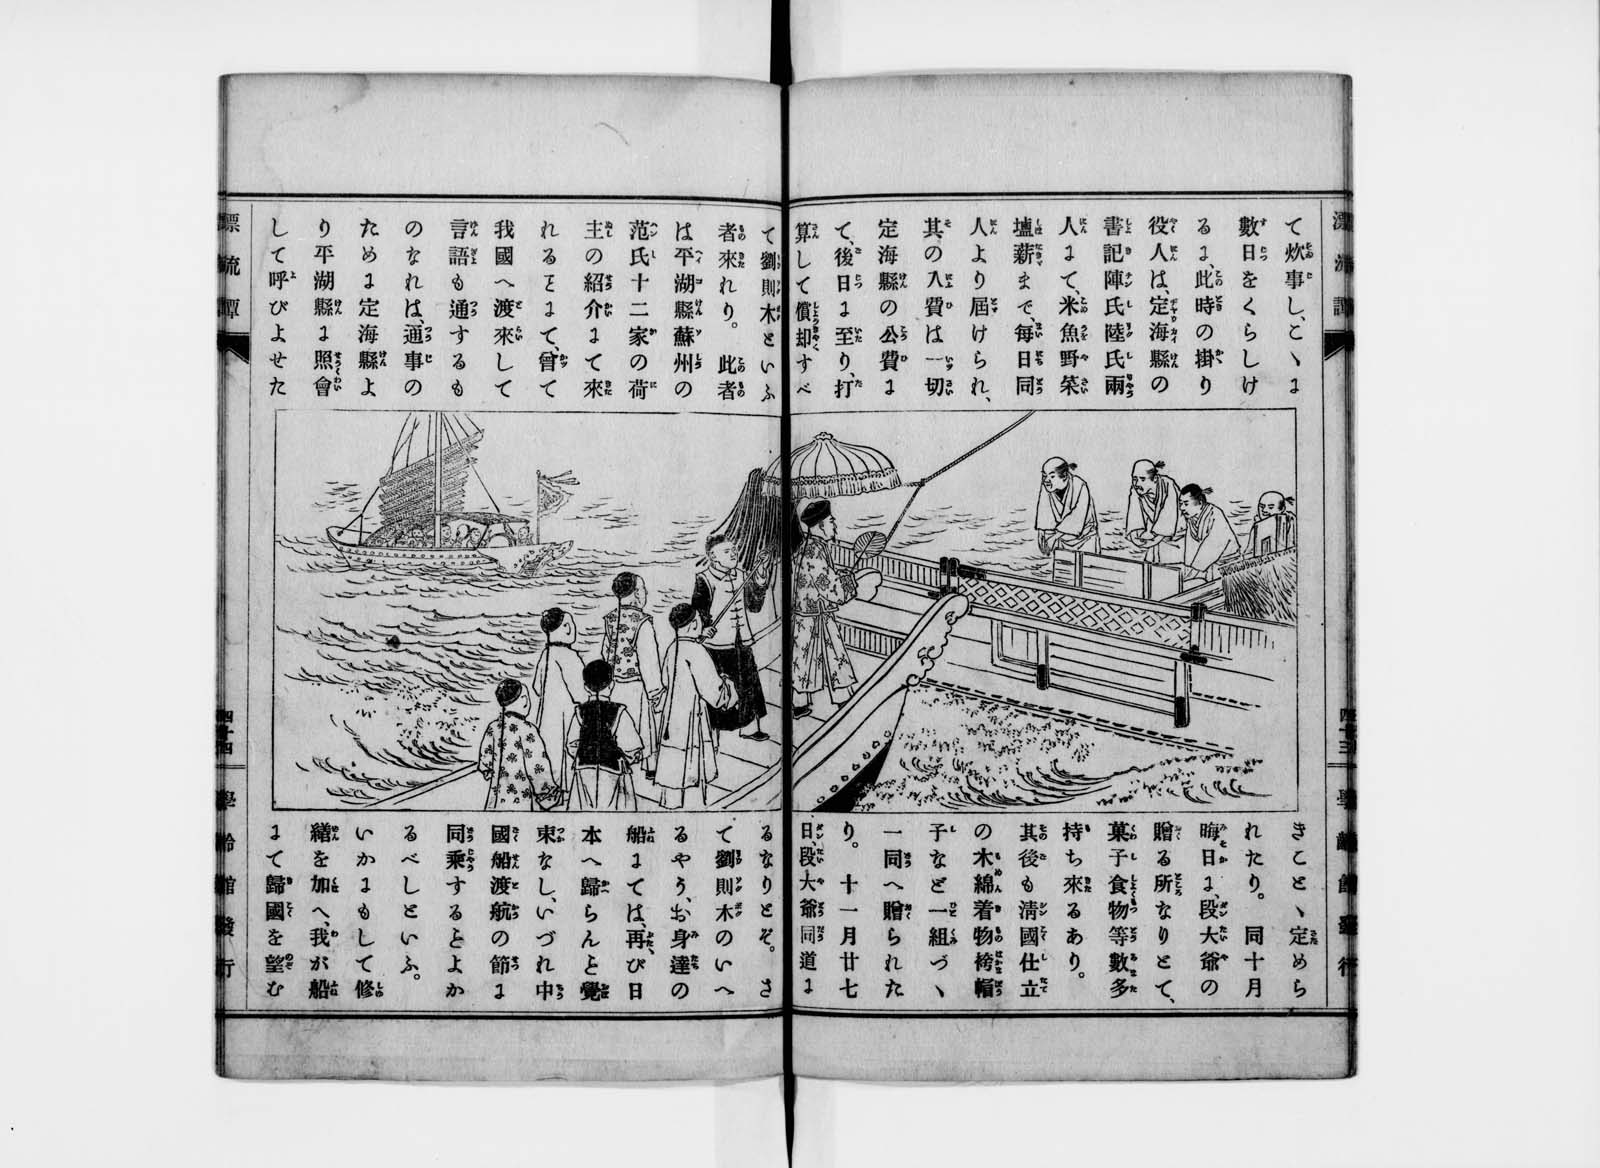 漂流譚
四十三
學齡館發行
て炊事し、こゝに
數日をくらしけ
るに、此時の掛り
役人は、定海縣の
書記陣氏陸氏兩
人にて、米魚野菜
塩薪まで、毎日同
人より屆けられ、
其の入費は一切
定海縣の公費に
て、後日に至り、打
算して償却すべ
きことゝ定めら
れたり。同十月
晦日に、段大爺の
贈る所なりとて、
菓子食物等數多
持ち來るあり。
其後も淸國仕立
の木綿着物袴帽
子など一組づゝ
一同へ贈られた
り。十一月廿七
日、段大爺同道に
て劉則木といふ
者來れり。此者
は平湖縣蘇州の
范氏十二家の荷
主の紹介にて來
れるまて、曾て
我國へ渡來して
言語も通するも
のなれは、通事の
ために定海縣よ
り平湖縣に照會
して呼びよせた
るなりとぞ。さ
て劉則木のいへ
るやう、お身達の
船にては、再び日
本へ歸らんと覺
束なし、いづれ中
國船渡航の節に
同乘するとよか
るべしといふ。
いかにもして修
繕を加へ、我が船
にて歸國を望む
漂流譚
四十四
學齡館發行